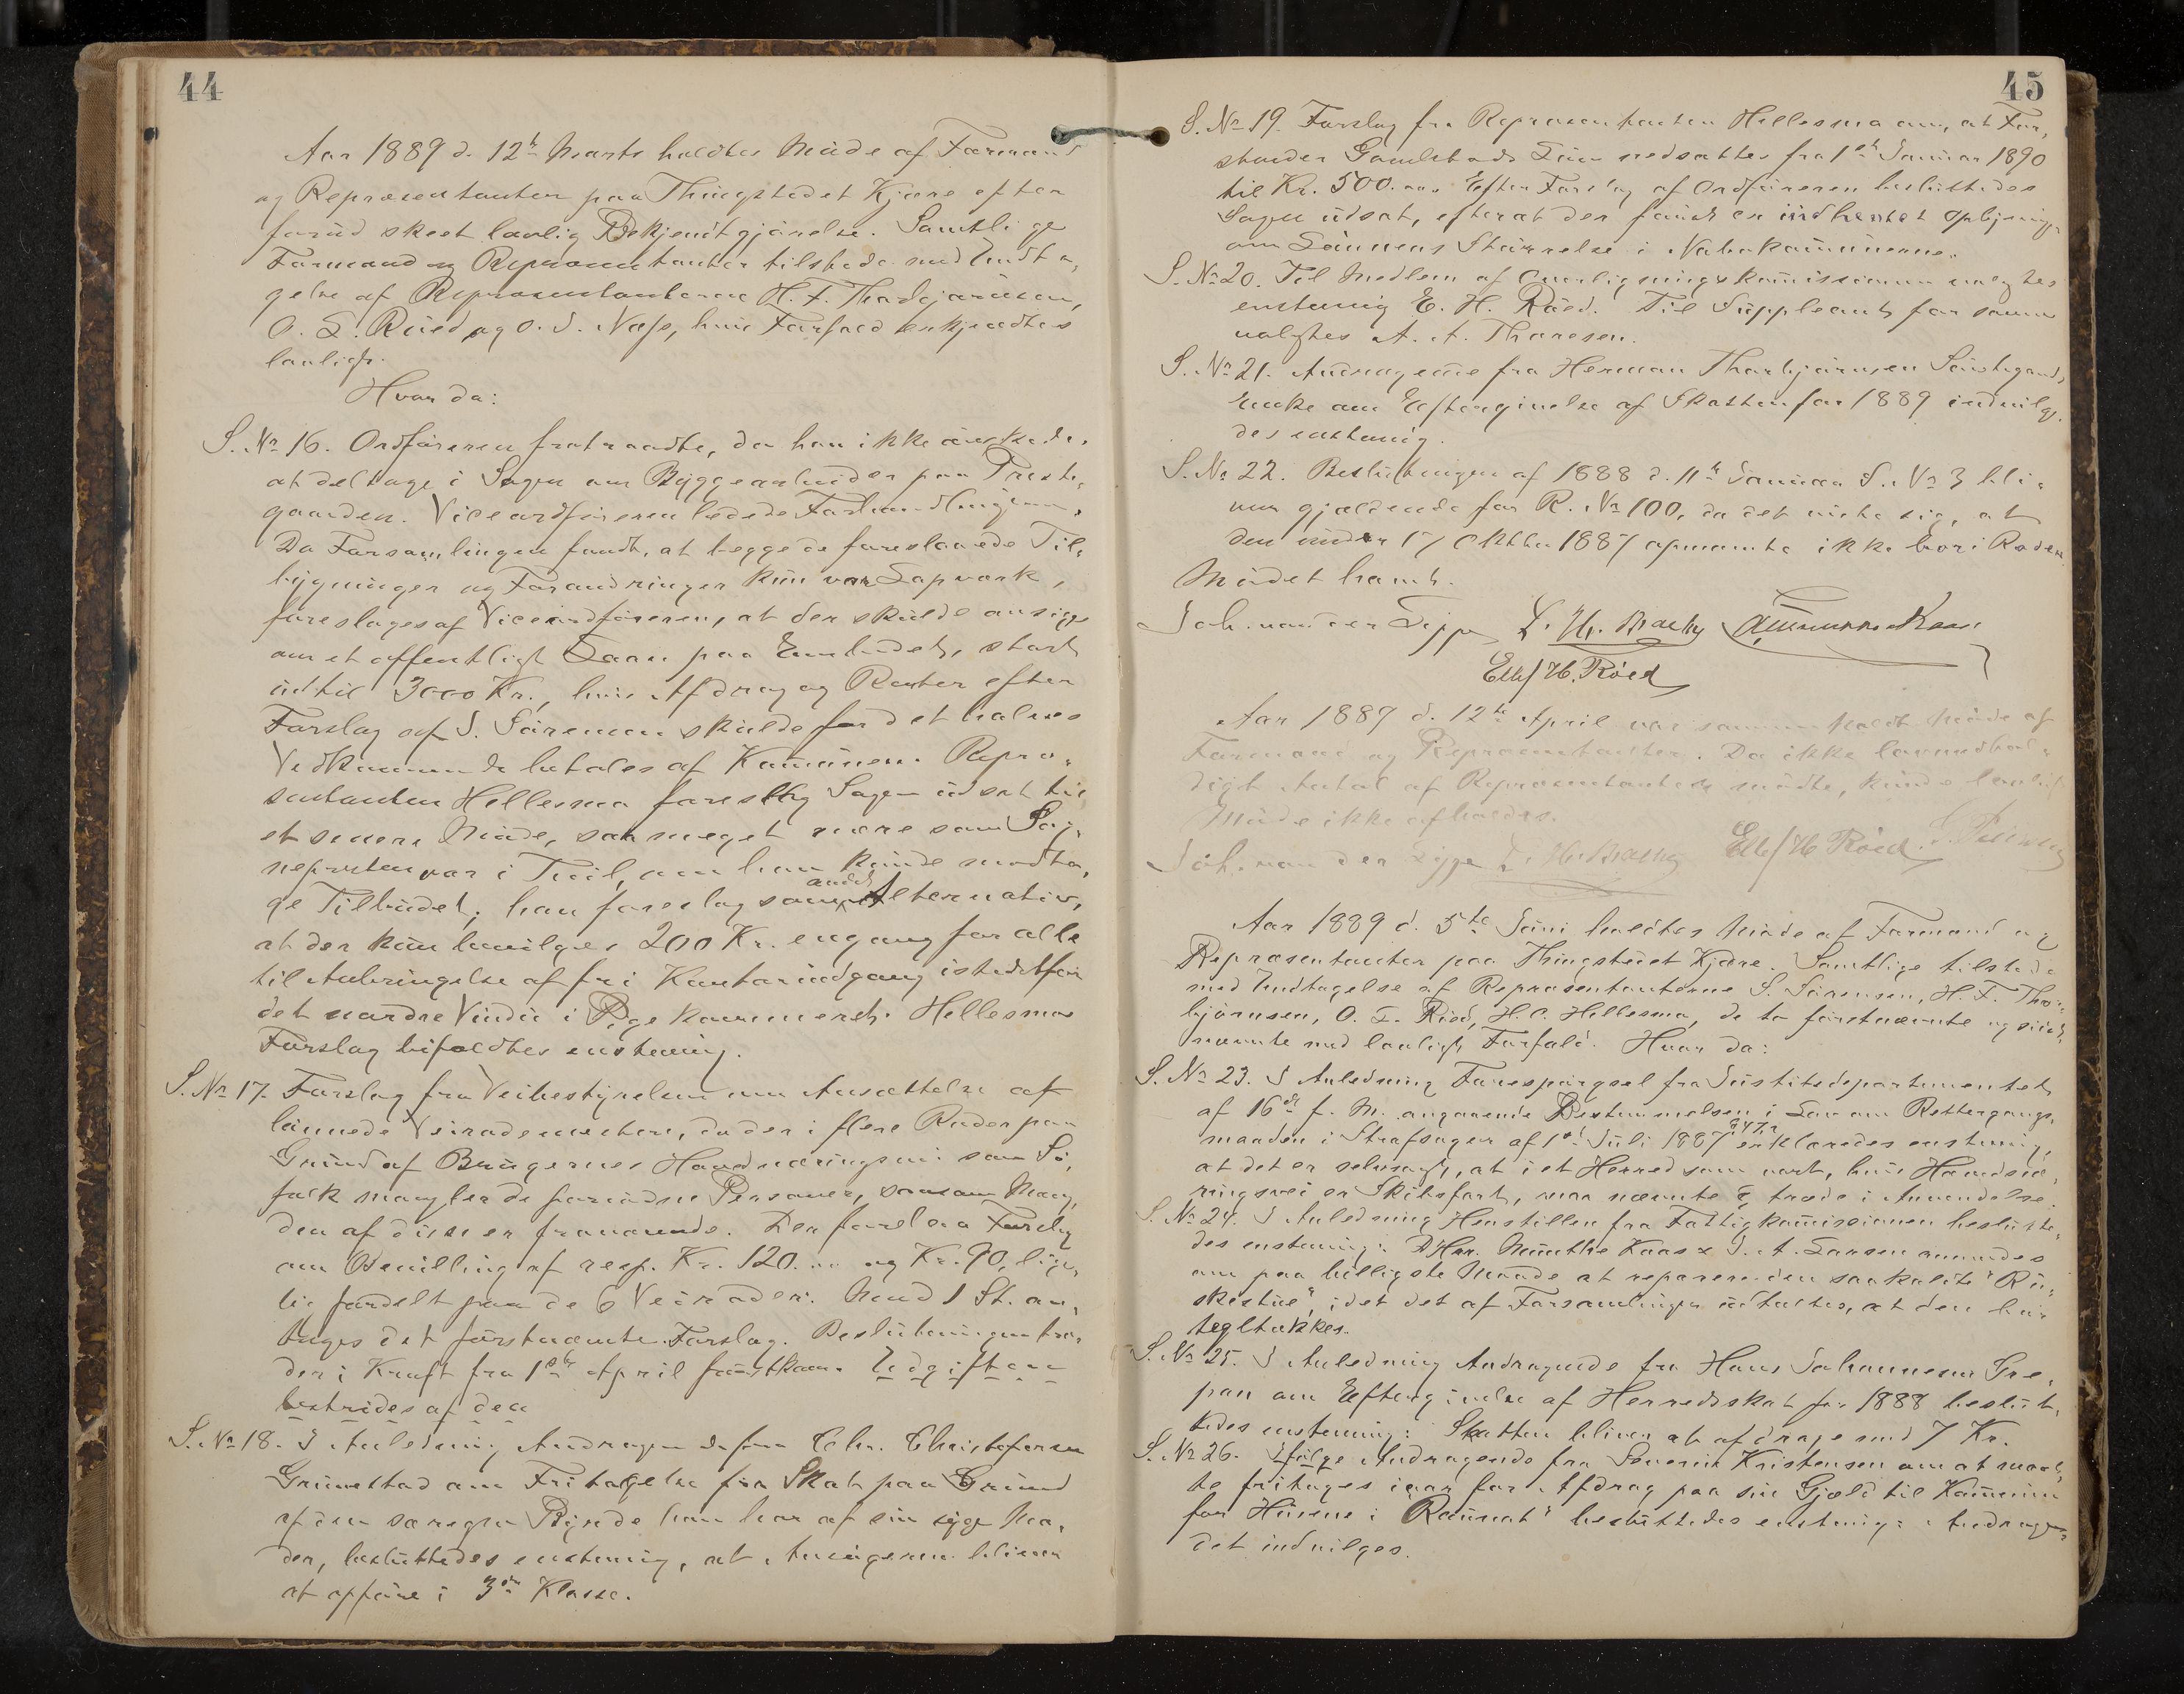 44
Aar 1889 d. 12te Marts holdtes Møde af Formænd
og Repræsentanter paa Thingstedet Kjøre efter
forud skeet lovlig Bekjendtgjørelse. Samtlige
Formænd og Repræsentanter tilstede med Undta,
gelse af Repræsentanterne H. F. Thorbjørnsen,
O. L. Røed og O. J. Næss, hvis Forfald erkjendtes
lovligt.
Hvor da:
S. No 16. Ordføreren fratraadte, da han ikke ønskede
at deltage i Sagen om Byggearbeider paa Preste,
gaarden. Viceordføreren ledede Forhandlingerne.
Da Forsamlingen fandt, at begge de foreslaaede Til,
bygninger og Forandringer kun var Lapværk,
foresloges af Viceordføreren, at der skulde ansøges
om et offentligt Laan paa Embedet, stort
indtil 3000 Kr., hvis Afdrag og Renter efter
Forslag af S. Sørensen skulde for det halves
Vedkommende betales af Kommunen. Repræ,
sentanten Hellesmo foreslog Sagen udsat til
et senere Møde, saa meget mere som Sog,
nepresten var i Tvil, om han kunde modta,
ge Tilbudet; han foreslog som andet Alternativ,
at der kun bevilges 200 Kr. engang for alle
til Anbringelse af fri Kontorindgang istedetfor
det nordre Vindu i Pigekammeret. Hellesmos
Forslag bifaldtes enstemmig.
S. No 17. Forslag fra Veibestyrelsen om Ansættelse af
lønnede Veirodemestere, da der i flere Roder paa
Grund af Brugernes Hovednæringsvei som Sø,
folk mangler de fornødne Personer, saasom Mæng,
den af disse er fraværende. Der forelaa Forslag
om Bevilling af resp. Kr. 120.00 og Kr. 90, lige,
lig fordelt paa de 6 Veiroder. Mod 1 St. an,
toges det førstnævnte Forslag. Beslutningen træ,
der i Kraft fra 1ste April førstkom. Udgiftene
bestrides af den
S. No 18. I Anledning Andragende fra Chr. Christofersen
Grimestad om Fritagelse fra Skat paa Grund
af den særegne Byrde han har af sin syge Mo,
der, besluttedes enstemmig, at Ansøgeren bliver
at opføre i 3die Klasse.
45
S. No 19. Forslag fra Repræsentanten Hellesmo om, at For,
stander Gamlestads Løn nedsættes fra 1ste Januar 1890
til Kr. 500.00. Efter Forslag af Ordføreren besluttedes
Sagen udsat, efterat der først er indhentet Oplysning
om Lønnens Størrelse i Nabokommunerne.
S. No 20. Til Medlem af Overligningskommissionen valgtes
enstemmig E. H. Røed. Til Suppleant for samme
valgtes A. A. Thoresen.
S. No 21. Andragende fra Herman Thorbjørnsen Søstegaards
Enke om Eftergivelse af Skatten for 1889 indvilge,
des enstemmig.
S. No 22. Beslutningen af 1888 d. 11te Januar S. No 3 bli,
ver gjældende for R. No 100, da det viste sig, at
den under 17 Oktbr 1887 opnævnte ikke bor i Roden.
Mødet hævet.
Joh. van der Lippe L. Hr. Bache Ammund Kaas
Ellef H. Røed
Aar 1889 d. 12te April var sammenkaldt Møde af
Formænd og Repræsentanter. Da ikke lovmedhol,
digt Antal af Repræsentanter mødte, kunde lovligt
Møde ikke afholdes.
Joh. van der Lippe L. Hr. Bache Ellef H Røed
Aar 1889 d. 5te Juni holdtes Møde af Formænd og
Repræsentanter paa Thingstedet Kjøre. Samtlige tilstede
med Undtagelse af Repræsentanterne S. Sørensen, H. F. Thor,
bjørnsen, O. L. Røed, H. C. Hellesmo, de to førstnævnte og sidst,
nævnte med lovligt Forfald. Hvor da:
S. No 23. I Anledning Forespørgsel fra Justitsdepartementet
af 16de f. M. angaaende Bestemmelsen i Lov om Rettergangs,
maaden i Strafsager af 1ste Juli 1887 § 47 erklæredes enstemmig,
at det er selvsagt, at i et Herred som vort, hvis Hovednæ,
ringsvei er Skibsfart, maa nævnte § træde i Anvendelse.
S. No 24. I Anledning Henstillen fra Fattigkommissionen beslutte,
des enstemmig: D'Hrr. Munthe Kaas & J. A. Larsen anmodes
om paa billigste Maade at reparere den saakaldte "Rø,
skestue", idet det af Forsamlingen udtaltes, at den bør
tegltækkes.
S. No 25. I Anledning Andragende fra Hans Johannesen Gre,
pan om Eftergivelse af Herredsskat for 1888 beslut,
tedes enstemmig: Skatten bliver at afdrage med 7 Kr.
S. No 26. Ifølge Andragende fra Severin Kristensen om at maat,
te fritages iaar for Afdrag paa sin Gjæld til Kommunen
for Husene i "Rønnat" besluttedes enstemmig: Andragen,
det indvilges.